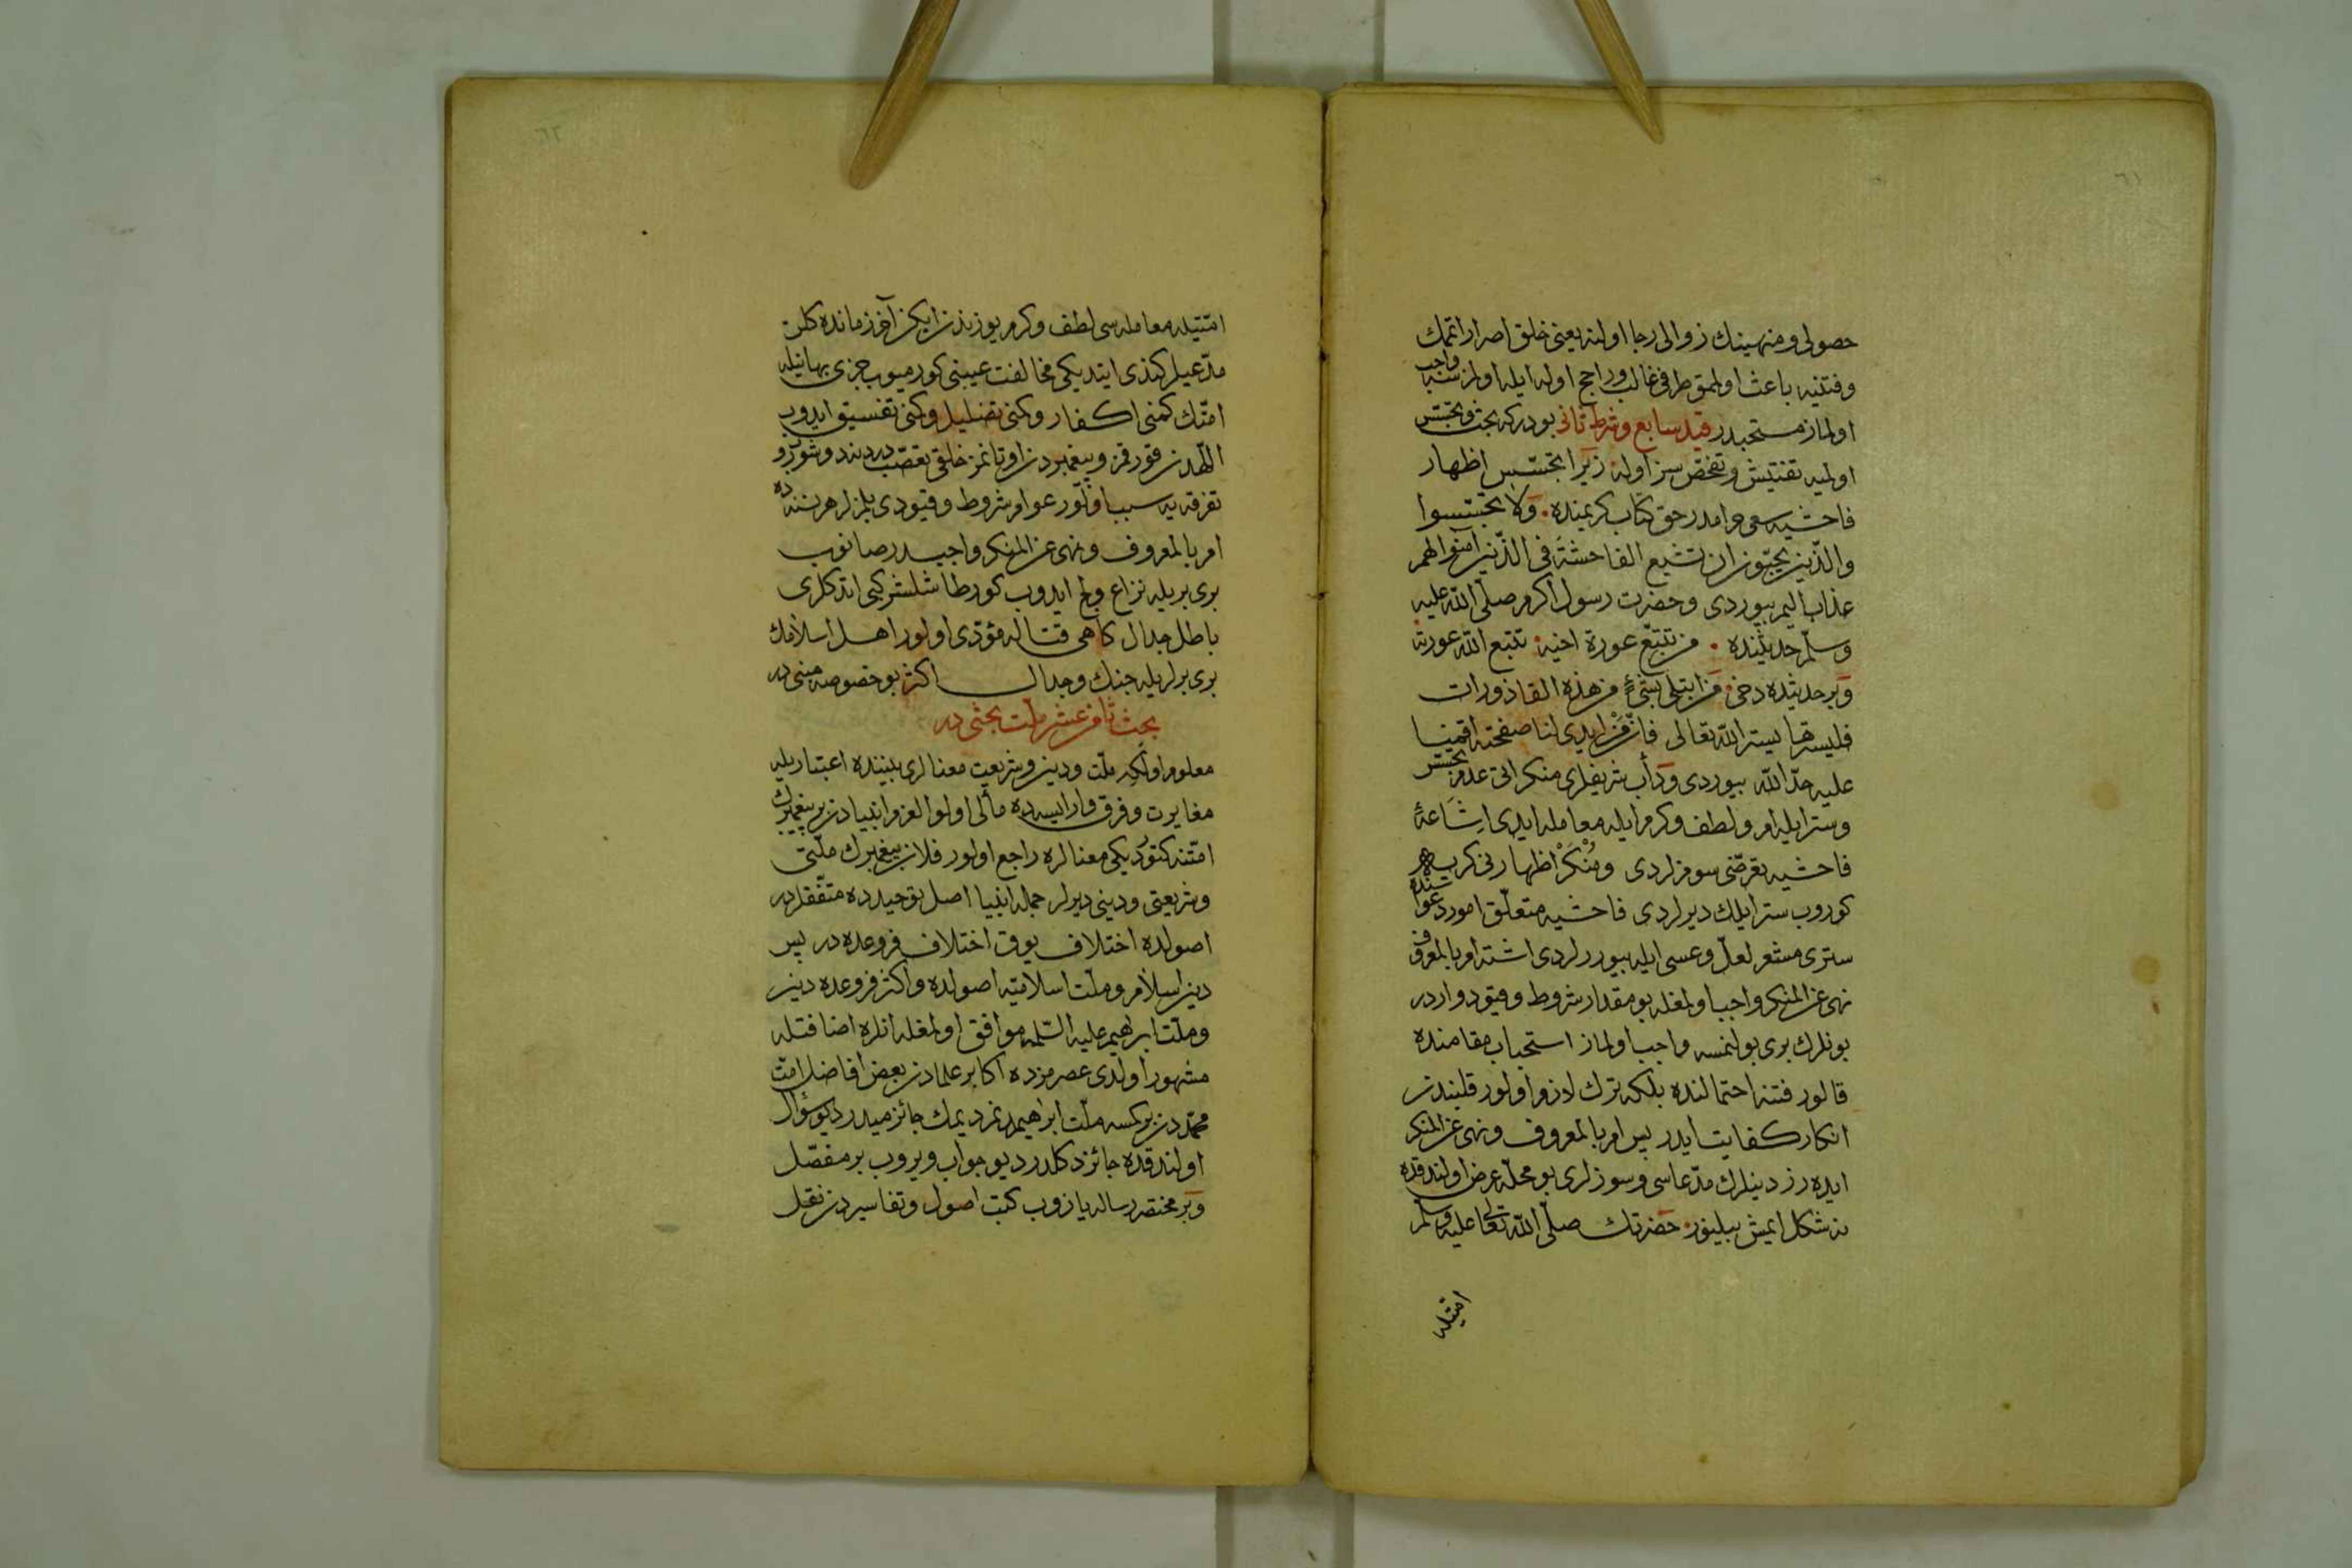 ٦١
حصولی ومنهینك زوالی رجا اولنه یعنی خلق اصرار اتمك
وفتنیه باعث اولمق طرفی غالب وراجح اوله ایله اولنسه واجب
اولماز مستحبدر قید سابع وشرط ثانی بودركه بحث وتجسس
اولمیه تفتیش وتفحص سز اوله زیرا تجسس اظهار
فاحشیه سعی حرامدر حق كتاب كریمنده ولا تجسسوا
والذین یحبون ان تشیع الفاحشة فی الذین آمنوا لهم
عذاب الیم بیوردی وحضرت رسول اكرم صلی الله علیه
وسلم حدیثنده من تتبع عورة اخیه تتبع الله عورته
وبر حدیثده دخی من ابتلی بشیء من هذه القاذورات
فلیسترها بستر الله تعالی فانه من ابدی لنا صفحته اقمنا
علیه حد الله بیوردی ودأب شریفلری منكراتی عدم تجسس
وستر ایله امر ولطف وكرم ایله معامله ایدی اشاعۀ
فاحشیه تعرضی سومزلردی ومنكر اظهار
كوروب ستر ایلك دیرلردی فاحشیه متعلق امور دعواسنده
ستری مشعر لعل وعسی ایله بیوررلردی اشته امر بالمعروف
نهی عن المنكر واجب اولمغله بو مقدار شروط وقیود واردر
بونلرك بری بولنمسه واجب اولماز استحباب مقامنده
قالور فتنه احتمالنده بلكه ترك لازم اولور قلبندن
انكار كفایت ایدر پس امر بالمعروف ونهی عن المنكر
ایده رز دینلرك مدعاسی وسوزلری بو محله عرض اولندقده
نه شكل ایمش بیلینور حضرتك صلی الله تعالی علیه وسلم
امتیله
٦٢
امتیله معامله سی لطف وكرم یوزندن ایكن آخر زمانده كلن
مدعیلر كندی ایتدیكی مخالفت عیبنی كورمیوب جزئی بهانیله
امتك كمنی اكفار وكمنی تضلیل وكمنی تفسیق ایدوب
اللهدن قورقمز وپیغمبردن اوتانمز خلقی تعصب دردند دوشورر
تفرقه یه سبب اولور عوام شروط وقیودی بلمزلر هر نسنه ده
امر بالمعروف ونهی عن المنكر واجبدر صانوب
بری بریله نزاع ولج ایدوب كورطاشلشر كبی ایتدكلری
باطل جدال كاهی قتاله مؤدی اولور اهل اسلامك
بری برلریله جنك وجدال اكثر بو خصوصه مبنی در
بحث ثامن عشر ملت بحثی در
معلوم اوله كه ملت ودین وشریعت معنالری بیننده اعتباریله
مغایرت وفرق وار ایسه ده مألی اولو العزم انبیادن بر پیغمبرك
امتنه كتوردیكی معنالره راجع اولور فلان پیغمبرك ملتی
وشریعتی ودینی دیرلر جمله انبیا اصل توحیدده متفقلردر
اصولده اختلاف یوق اختلاف فروعده در پس
دین اسلام وملت اسلامیه اصولده واكثر فروعده دین
وملت ابرهیم علیه السلمه موافق اولمغله انلره اضافتله
مشهور اولدی عصرمزده اكابر علمادن بعض افاضل امت
محمددن بر كمسه ملت ابراهیمدنم دیمك جائز میدر دیو سؤال
اولندقده جائز دكلدر دیو جواب ویروب بر مفصل
وبر مختصر رساله یازوب كتب اصول وتفاسیردن نقل